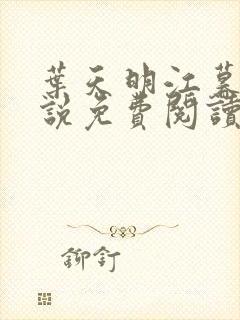 葉天明江慕
說免費閱讀
鉚釘